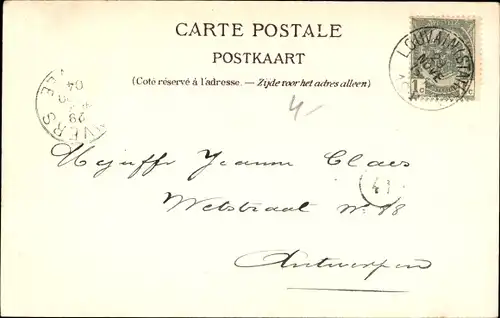 CARTE POSTALE
POSTKAART
(Coté réservé á l'adresse. — Zijde voor het adres alleen)
4-
LOUVAIN
NOVE
1
29
04
Mejuffr Jeanne Claes
41
Wetstraat Nr 88
Antwerpen